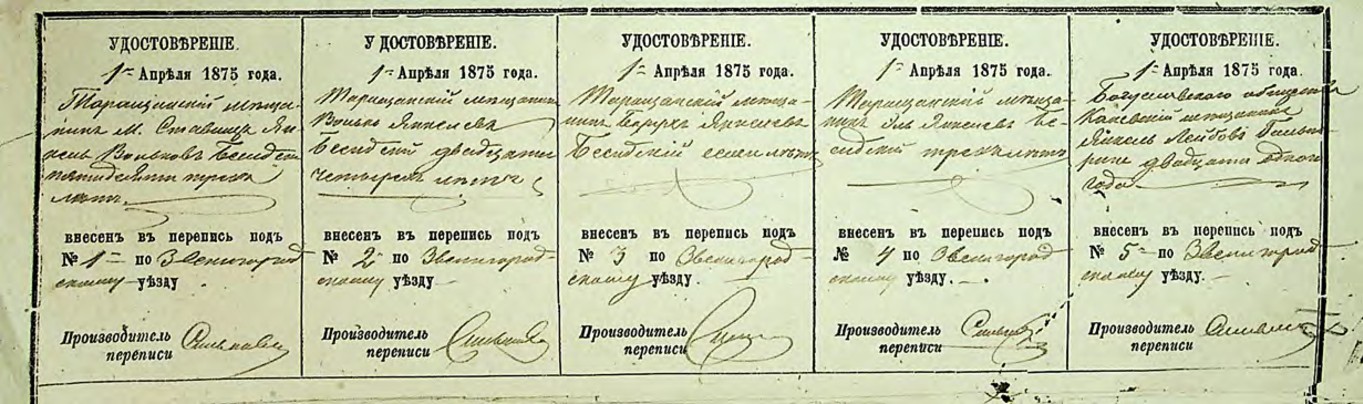 УДОСТОВѢРЕНІЕ.
1 Апрѣля 1875 года.
Таращанскій мѣща-
нинъ М. Ставищъ Ян-
кель Вольковъ Бесидскій
пятидесяти трехъ
лѣтъ
внесенъ въ перепись подъ
№ 1 по Звенигород
скому уѣзду.
Производитель
переписи
УДОСТОВѢРЕНІЕ.
1 Апрѣля 1875 года.
Таращанскій мѣщанинъ
Волько Янкелевъ
Бесидскій двадцати
четырехъ лѣтъ
внесенъ въ перепись подъ
№ 2 по Звенигород-
скому уѣзду
Производитель
переписи
УДОСТОВѢРЕНІЕ.
1 Апрѣля 1875 года.
Таращанскій мѣща-
нинъ Борухъ Янкелевъ
Бесидскій семи лѣтъ
внесенъ въ перепись подъ
№ 3 по Звенигород-
скому уѣзду.
Производитель
переписи
УДОСТОВѢРЕНІЕ.
1 Апрѣля 1875 года.
Таращанскій мѣща-
нинъ Эль Янкелевъ Бе-
сидскій трехъ лѣтъ
внесенъ въ перепись подъ
№ 4 по Звенигород
скому уѣзду.
Производитель
переписи
УДОСТОВѢРЕНІЕ.
1 Апрѣля 1875 года.
Богуславскаго общества
Каневскій мѣщанинъ
Янкель Лейбовъ
двадцати одного
года
внесенъ въ перепись подъ
№ 5 по Звенигород
скому уѣзду
Производитель
переписи